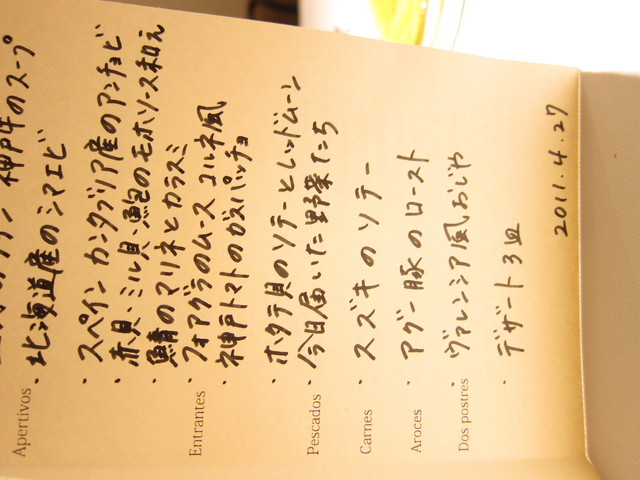 神戸牛のスープ
Apertivos
・北海道産のシマエビ
・スペイン カンタブリア産のアンチョビ
・赤貝、ミル貝、鮑のモホソース和え
・鯖のマリネとカラスミ
Entrantes
・フォアグラのムース コルネ風
・神戸トマトのガスパッチョ
・ホタテ貝のソテーとレッドムーン
・今日届いた野菜たち
Pescados
・スズキのソテー
Carnes
・アグー豚のロースト
Aroces
・ヴァレンシア風おじや
Dos postres
・デザート3皿
2011.4.27